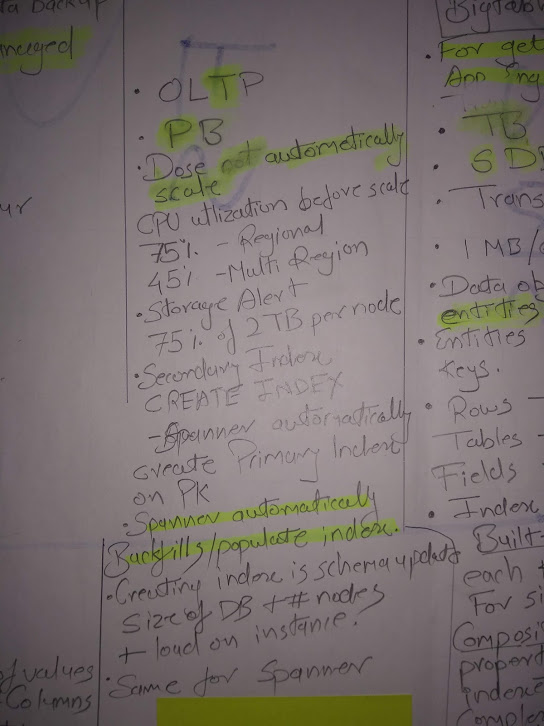 ta Backup
anaged
ur
of values
Columns
• OLTP
• PB
• Dose not automatically
scale
CPU utlization before scale
75% - Regional
45% - Multi Region
• Storage Alert
75% of 2 TB per node
• Secondary Index
CREATE INDEX
- Spanner automatically
create Primary Index
on PK
• Spanner automatically
Backfills/populate index.
• Creating index is schema update
Size of DB + # nodes
+ load on instance.
• Same for Spanner
• For get
• TB
• Trans
• 1 MB/
• Data ob
entities
• Entities
Keys.
• Rows -
Tables -
Fields
• Index
Built-
each
For si
Composi
propert
indexe
Complex